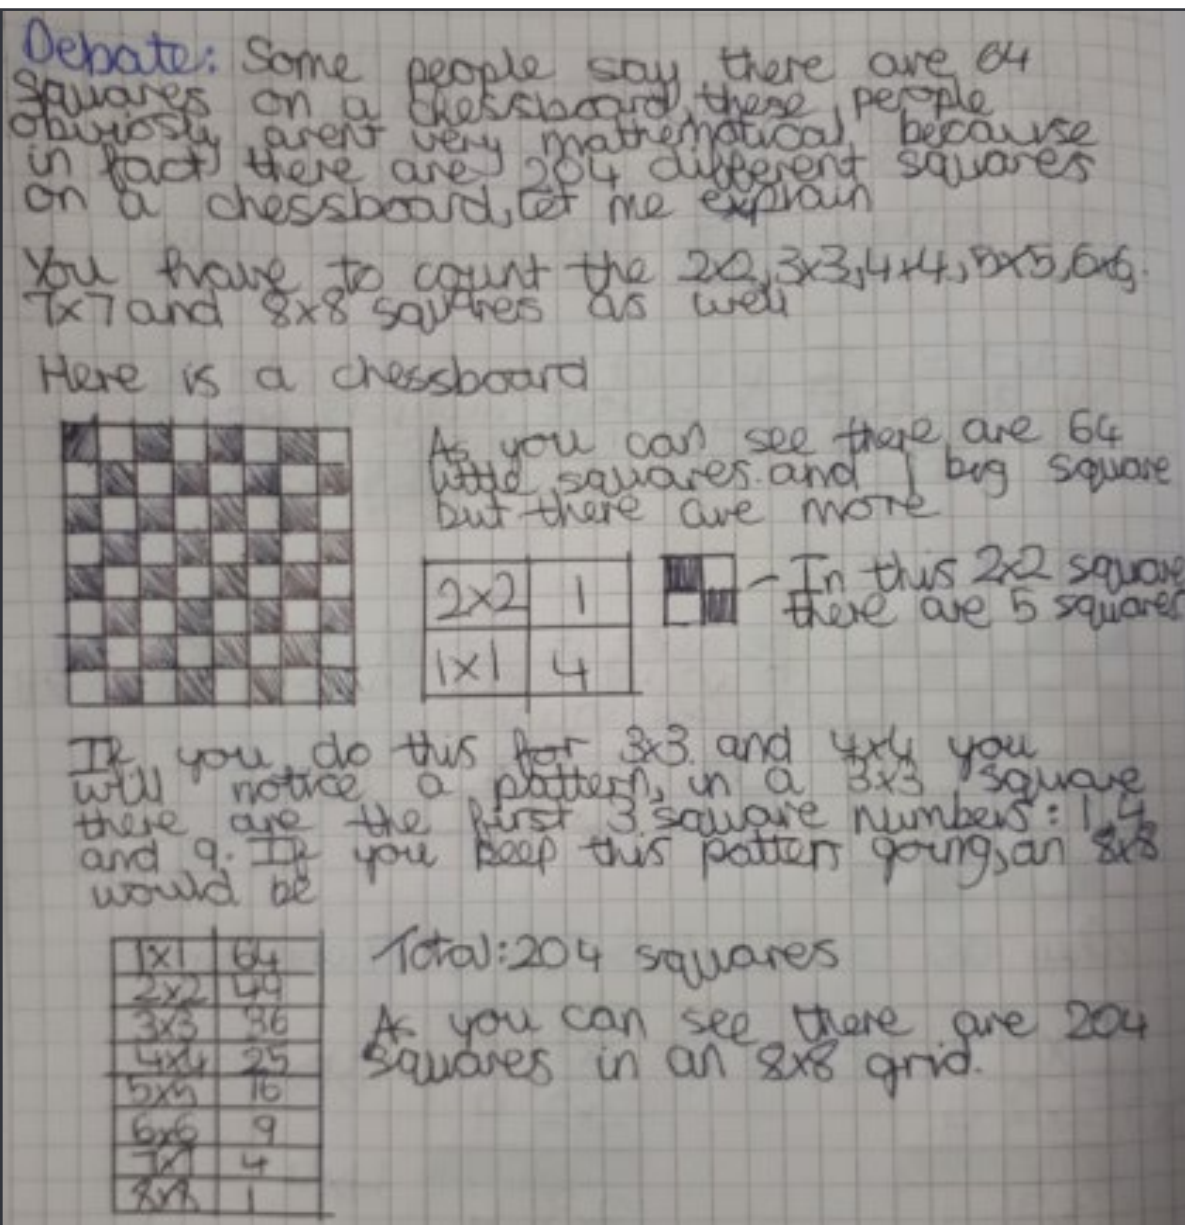 Debate: Some people say there are 64
squares on a chessboard, these people
obviosly arent very mathematical, because
in fact there are 204 different squares
on a chessboard, let me explain
You have to count the 2x2, 3x3, 4x4, 5x5, 6x6,
7x7 and 8x8 squares as well
Here is a chessboard
As you can see there are 64
little squares and 1 big square
but there are more
2x2 1
1x1 4
- In this 2x2 square
there are 5 squares
If you do this for 3x3 and 4x4 you
will notice a pattern, in a 3x3 square
there are the first 3 square numbers: 1, 4
and 9. If you keep this pattern going, an 8x8
would be
1x1 64
2x2 49
3x3 36
4x4 25
5x5 16
6x6 9
7x7 4
8x8 1
Total: 204 squares
As you can see there are 204
squares in an 8x8 grid.